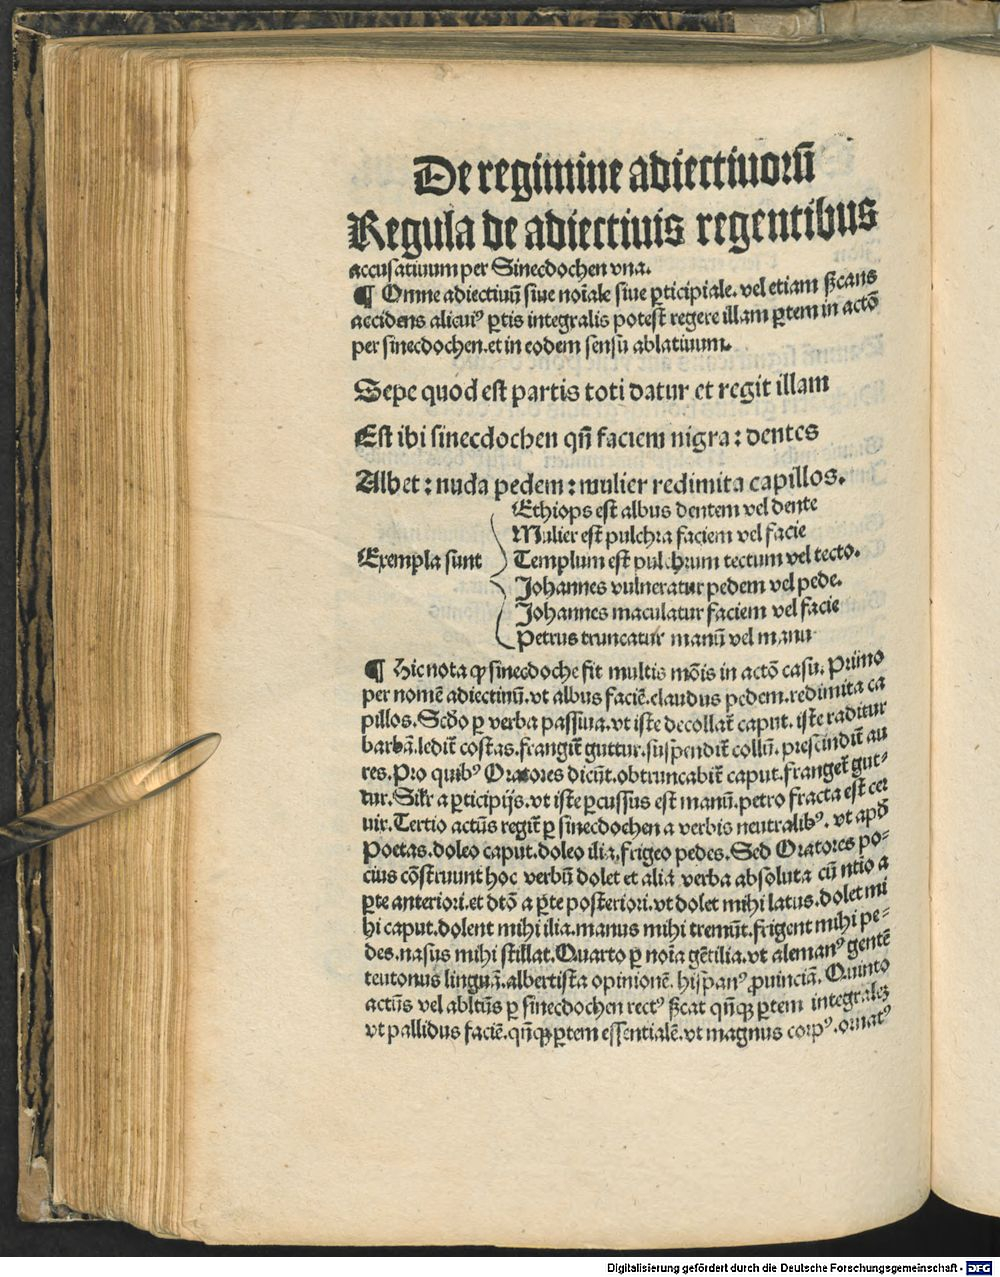 De regimine adiectiuorū
Regula de adiectiuis regentibus
accusatiuum per Sinecdochen vna.
¶ Omne adiectiuū siue noīale siue ꝑticipiale. vel etiam ſꝫcans
accidens alicuiꝰ ꝑtis integralis potest regere illam ꝑtem in actō
per sinecdochen. et in eodem sensu ablatiuum.
Sepe quod est partis toti datur et regit illam
Est ibi sinecdochen qn̄ faciem nigra: dentes
Albet: nuda pedem: mulier redimita capillos.
Exempla sunt
Ethiops est albus dentem vel dente
Mulier est pulchra faciem vel facie
Templum est pulchrum tectum vel tecto.
Johannes vulneratur pedem vel pede.
Johannes maculatur faciem vel facie
Petrus truncatur manū vel manu
¶ Hic nota ꝙ sinecdoche fit multis mōis in actō casu. Primo
per nomē adiectinū. vt albus faciē. claudus pedem. redimita ca
pillos. Scḋo ꝑ verba passiua. vt iste decollat̄ caput. iste raditur
barbā. ledit̄ costas. frangit̄ guttur. suspendit̄ collū. prescindit̄ au
res. Pro quibꝰ Oratores dicūt. obtruncabit̄ caput. franget̄ gut⸗
tur. Silr̄ a ꝑticipijs. vt iste ꝑcussus est manū. petro fracta est cer
uir. Tertio actūs regit̄ ꝑ sinecdochen a verbis neutralibꝰ. vt apḋ
Poetas. doleo caput. doleo ilia. frigeo pedes. Sed Oratores po⸗
cius cōstruunt hoc verbū dolet et alia verba absoluta cū ntio a
ꝑte anteriori. et dtō a ꝑte posteriori. vt dolet mihi latus. dolet mi
hi caput. dolent mihi ilia. manus mihi tremūt. frigent mihi pe⸗
des. nasus mihi stillat. Quarto ꝑ noīa gētilia. vt alemanꝰ gentē
teutonus linguā. albertista opinionē. hispanꝰ ꝓuinciā. Quinto
actūs vel abltūs ꝑ sinecdochen rectꝰ ſꝫcat qn̄qꝫ ꝑtem integralēꝫ
vt pallidus faciē. qn̄qꝫ ꝑtem essentialē. vt magnus corpꝰ. ornatꝰ
Digitalisierung gefördert durch die Deutsche Forschungsgemeinschaft - DFG